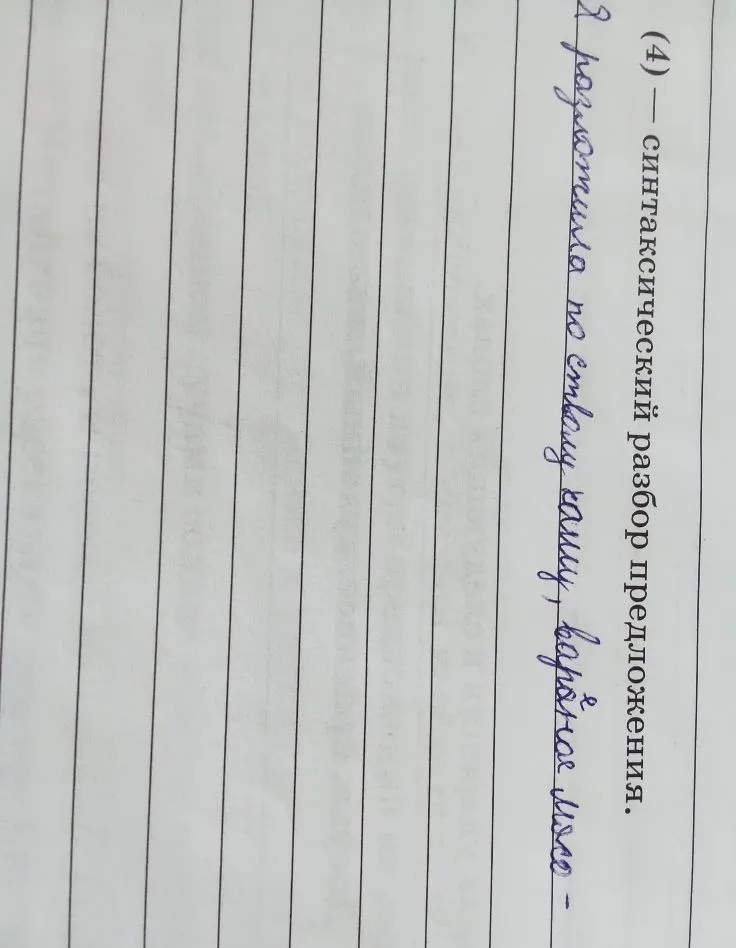 (4) — синтаксический разбор предложения.
Я разложила по стволу кашу, варёное мясо -